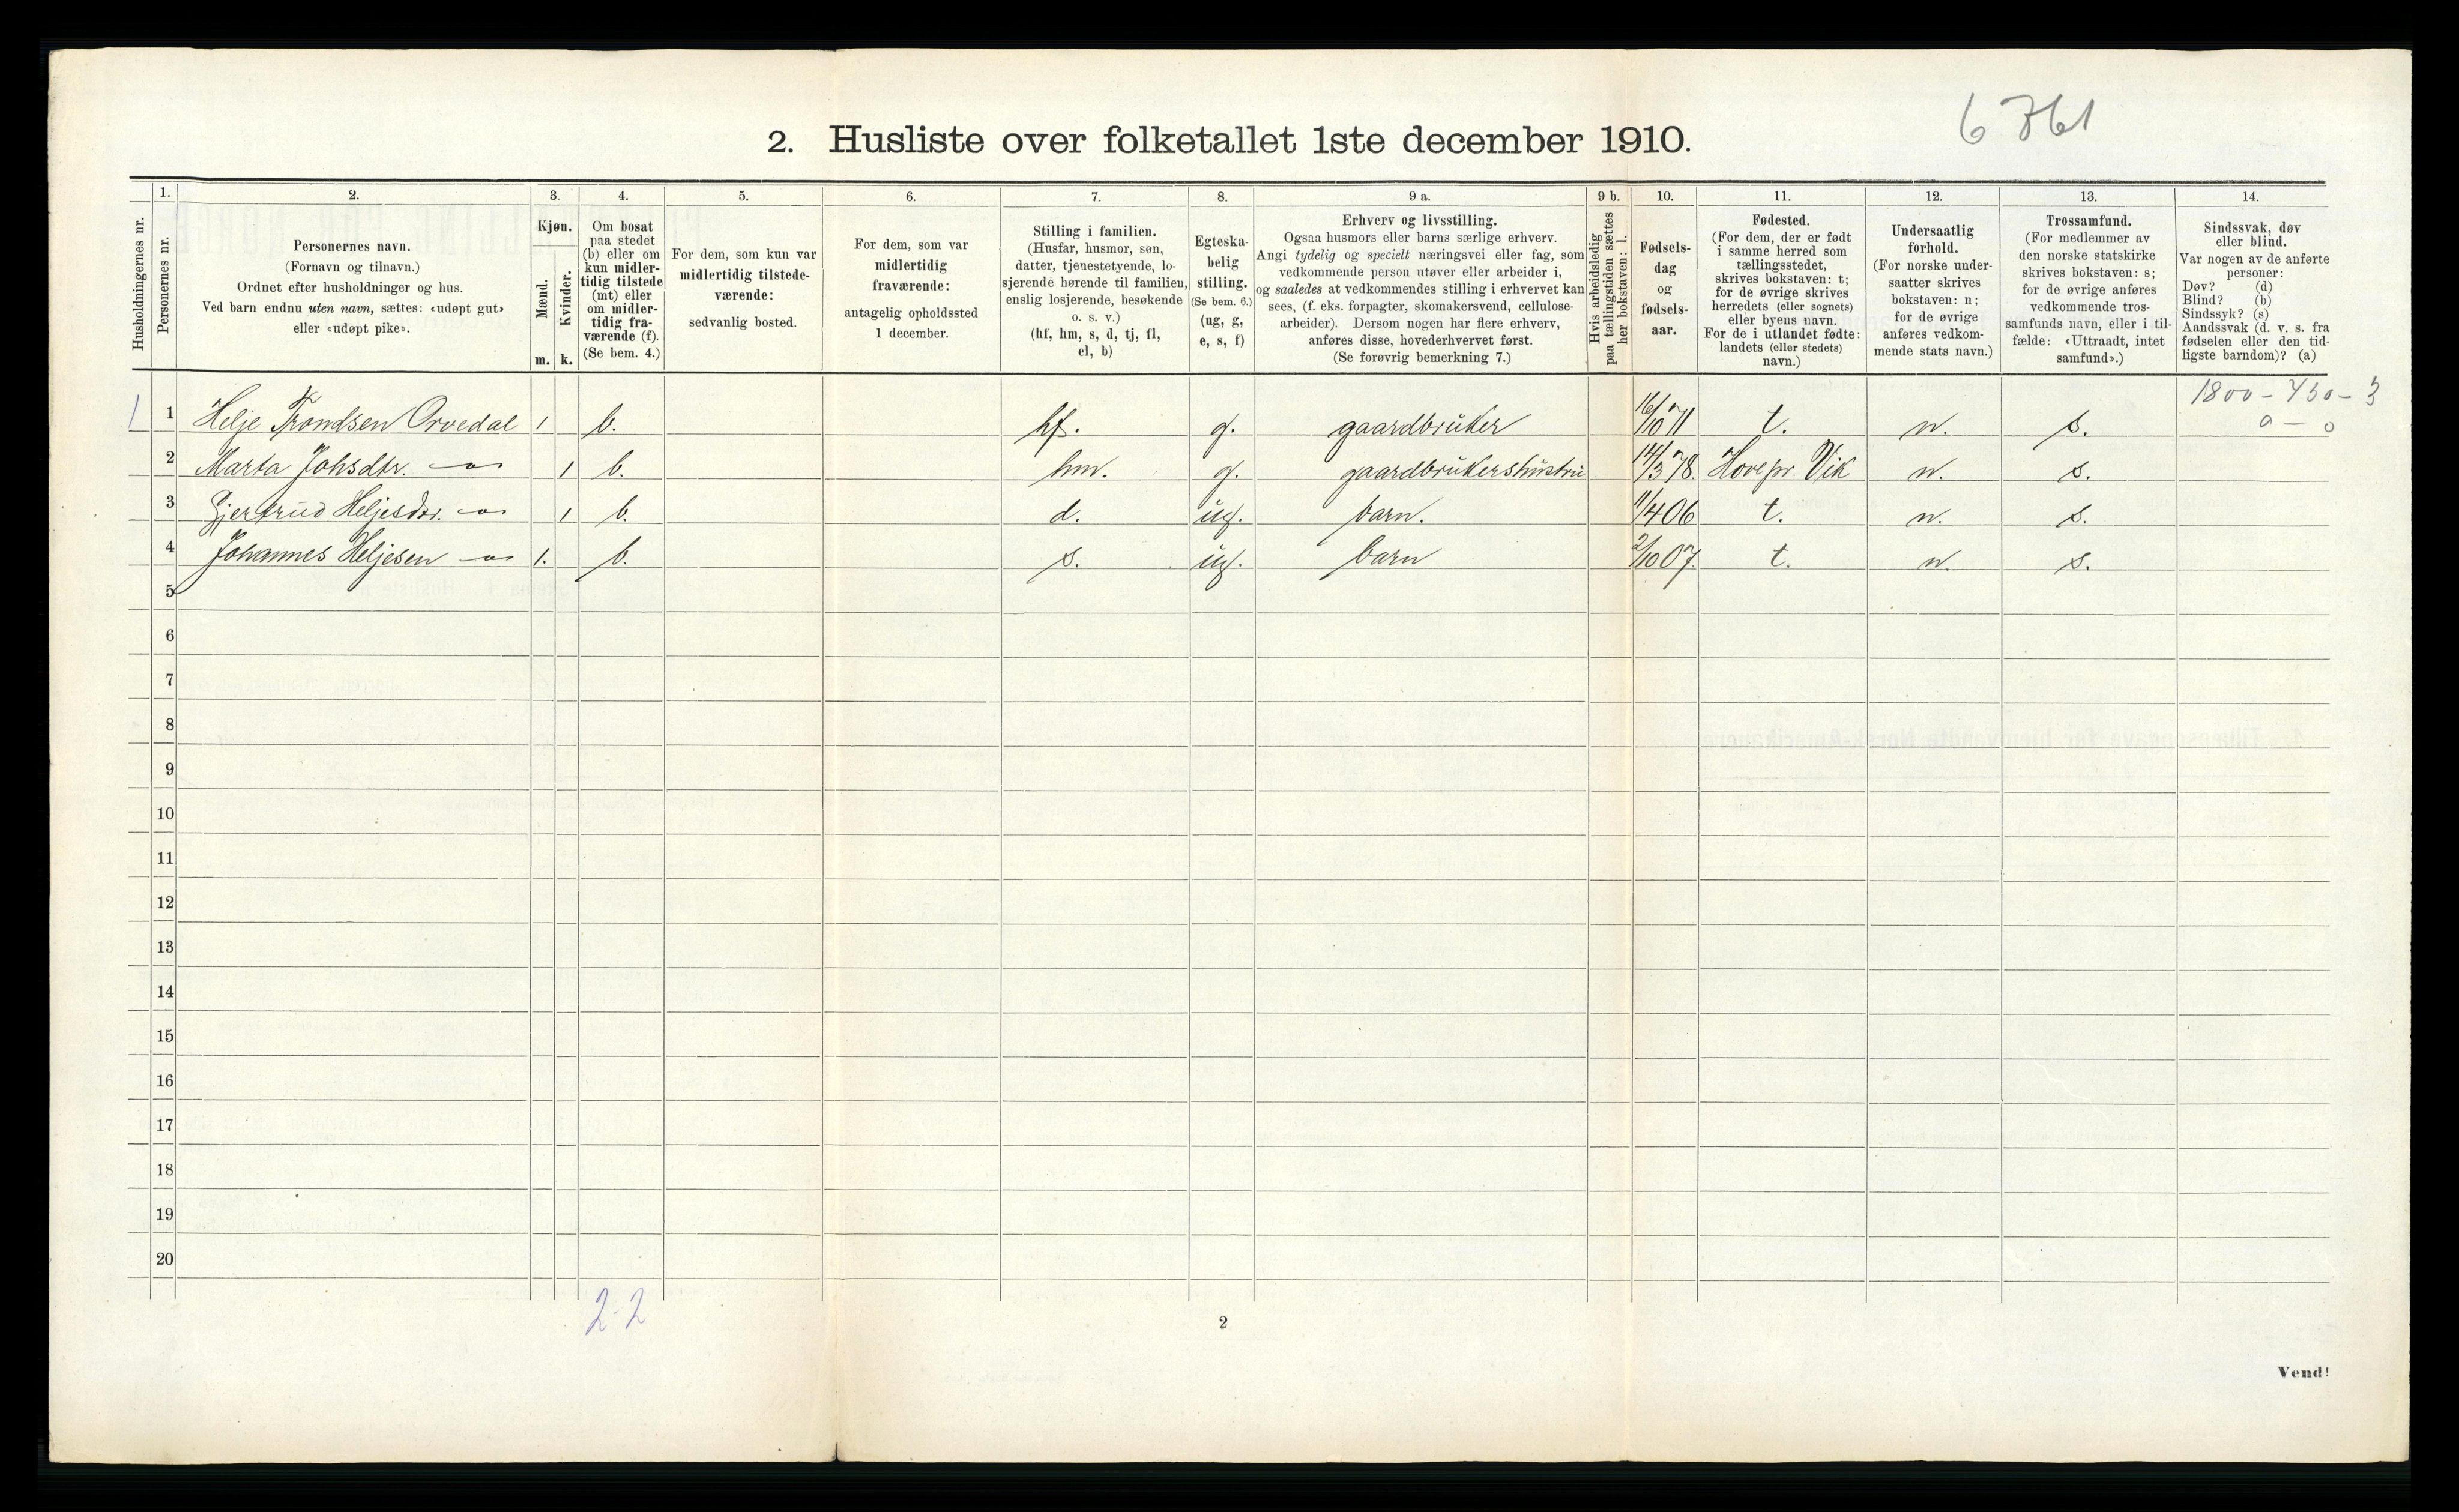 6 761
2. Husliste over folketallet 1ste december 1910.
Husholdningernes nr.
1.
Personernes nr.
2.
Personernes navn.
(Fornavn og tilnavn.)
Ordnet efter husholdninger og hus.
Ved barn endnu uten navn, sættes: «udøpt gut»
eller «udøpt pike».
3.
Kjøn.
Mænd.
Kvinder.
m. k.
4.
Om bosat
paa stedet
(b) eller om
kun midler-
tidig tilstede
(mt) eller
om midler-
tidig fra-
værende (f).
(Se bem. 4.)
5.
For dem, som kun var
midlertidig tilstede-
værende:
sedvanlig bosted.
6.
For dem, som var
midlertidig
fraværende:
antagelig opholdssted
1 december.
7.
Stilling i familien.
(Husfar, husmor, søn,
datter, tjenestetyende, lo-
sjerende hørende til familien,
enslig losjerende, besøkende
o. s. v.)
(hf, hm, s, d, tj, fl,
el, b)
8.
Egteska-
belig
stilling.
(Se bem. 6.)
(ug, g,
e, s, f)
9 a.
Erhverv og livsstilling.
Ogsaa husmors eller barns særlige erhverv.
Angi tydelig og specielt næringsvei eller fag, som
vedkommende person utøver eller arbeider i,
og saaledes at vedkommendes stilling i erhvervet kan
sees, (f. eks. forpagter, skomakersvend, cellulose-
arbeider). Dersom nogen har flere erhverv,
anføres disse, hovederhvervet først.
(Se forøvrig bemerkning 7.)
9 b.
Hvis arbeidsledig
paa tællingstiden sættes
her bokstaven: l.
10.
Fødsels-
dag
og
fødsels-
aar.
11.
Fødested.
(For dem, der er født
i samme herred som
tællingsstedet,
skrives bokstaven: t;
for de øvrige skrives
herredets (eller sognets)
eller byens navn.
For de i utlandet fødte:
landets (eller stedets)
navn.)
12.
Undersaatlig
forhold.
(For norske under-
saatter skrives
bokstaven: n;
for de øvrige
anføres vedkom-
mende stats navn.)
13.
Trossamfund.
(For medlemmer av
den norske statskirke
skrives bokstaven: s;
for de øvrige anføres
vedkommende tros-
samfunds navn, eller i til-
fælde: «Uttraadt, intet
samfund».)
14.
Sindssvak, døv
eller blind.
Var nogen av de anførte
personer:
Døv? (d)
Blind? (b)
Sindssyk? (s)
Aandssvak (d. v. s. fra
fødselen eller den tid-
ligste barndom)? (a)
1800 - 450 - 3
0 - 0
1 1 Helje Trondsen Orvedal 1 b. hf. g. gaardbruker 16/10 71 t. n. s.
2 Marta Johsdtr. -"- 1 b. hm. g. gaardbrukershustru 14/3 78. Hovepr. Vik n. s.
3 Gjertrud Heljesdtr. -"- 1 b. d. ug. barn. 11/4 06 t. n. s.
4 Johannes Heljesen -"- 1. b. s. ug. barn 2/10 07. t. n. s.
5
6
7
8
9
10
11
12
13
14
15
16
17
18
19
20
2 - 2
2
Vend!